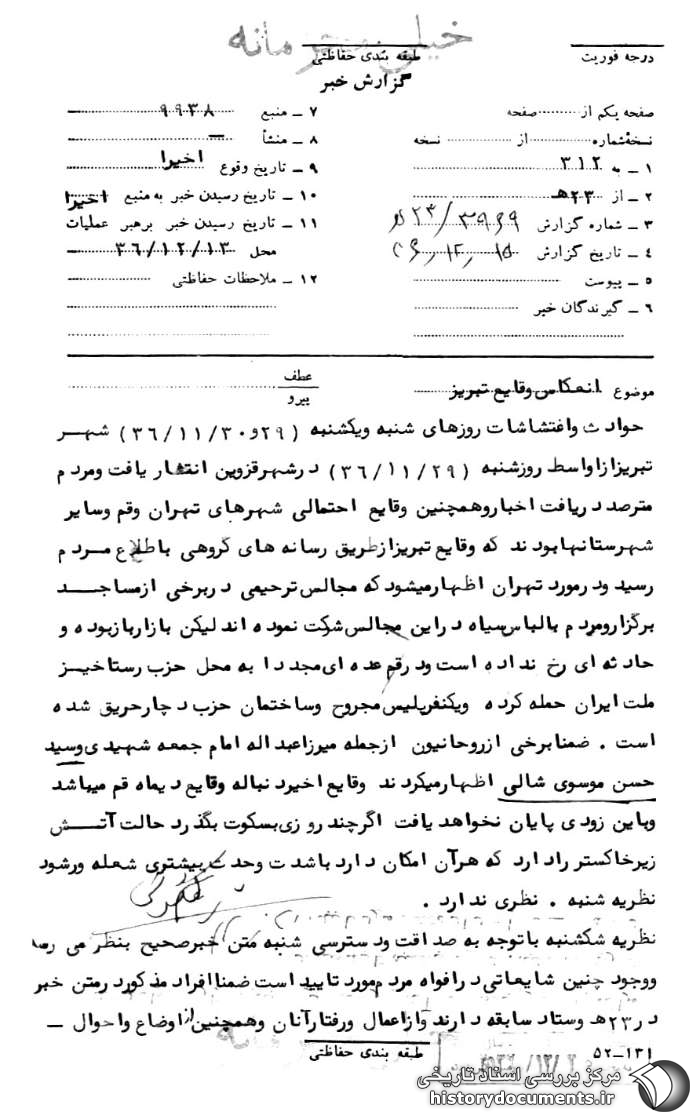 خیلی محرمانه
درجه فوریت
طبقه بندی حفاظتی
گزارش خبر
صفحه یکم از صفحه
نسخهٔ شماره از نسخه
۱ ـ به ۳۱۲
۲ ـ از ۲۳هـ
۳ ـ شماره گزارش ۲۳/۳۹۶۹هـ
۴ ـ تاریخ گزارش
۵ ـ پیوست
۶ ـ گیرندگان خبر
۷ ـ منبع ۹۹۳۸
۸ ـ منشأ —
۹ ـ تاریخ وقوع اخیرا
۱۰ ـ تاریخ رسیدن خبر به منبع اخیرا
۱۱ ـ تاریخ رسیدن خبر برهبر عملیات
محل ۳۶/۱۲/۱۳
۱۲ ـ ملاحظات حفاظتی
موضوع انعکاس وقایع تبریز
عطف
پیرو
حوادث واغتشاشات روزهای شنبه ویکشنبه (۲۹و۳۶/۱۱/۳۰) شهر
تبریزازاواسط روزشنبه (۳۶/۱۱/۲۹) درشهرقزوین انتشار یافت ومردم
مترصد دریافت اخباروهمچنین وقایع احتمالی شهرهای تهران وقم وسایر
شهرستانهابودند که وقایع تبریزازطریق رسانه های گروهی باطلاع مردم
رسید ودرمورد تهران اظهارمیشود که مجالس ترحیمی دربرخی ازمساجد
برگزارومردم بالباس سیاه دراین مجالس شرکت نموده اند لیکن بازاربازبوده و
حادثه ای رخ نداده است ودرقم عده ای مجددا به محل حزب رستاخیز
ملت ایران حمله کرده ویکنفرپلیس مجروح وساختمان حزب دچارحریق شده
است . ضمنابرخی ازروحانیون ازجمله میرزاعبداله امام جمعه شهیدی وسید
حسن موسوی شالی اظهارمیکردند وقایع اخیردنباله وقایع دیماه قم میباشد
وباین زودی پایان نخواهد یافت اگرچند روزی بسکوت بگذرد حالت آتش
زیرخاکستر رادارد که هرآن امکان دارد باشدت وحدت بیشتری شعله ورشود
نظریه شنبه . نظری ندارد .
نظریه شکشنبه باتوجه به صداقت ودسترسی شنبه متن خبرصحیح بنظر می رسد
ووجود چنین شایعاتی درافواه مردم مورد تایید است ضمناافراد مذکوردرمتن خبر
در۲۳هـ وستاد سابقه دارند وازاعمال ورفتارآنان وهمچنین از اوضاع واحوال —
۱۳۱ـ۵۲
طبقه بندی حفاظتی
مرکز بررسی اسناد تاریخی
historydocuments.ir